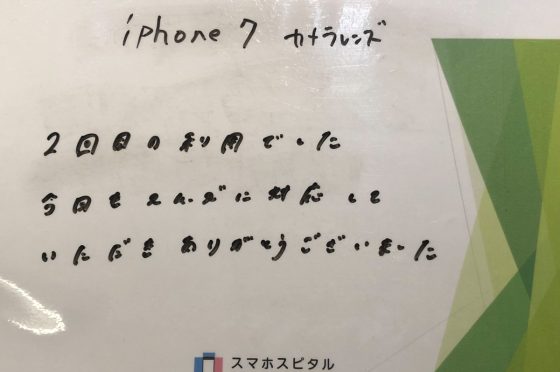 iphone 7 カメラレンズ
2回目の利用でした
今回もていねいに対応して
いただきありがとうございました
スマホスピタル